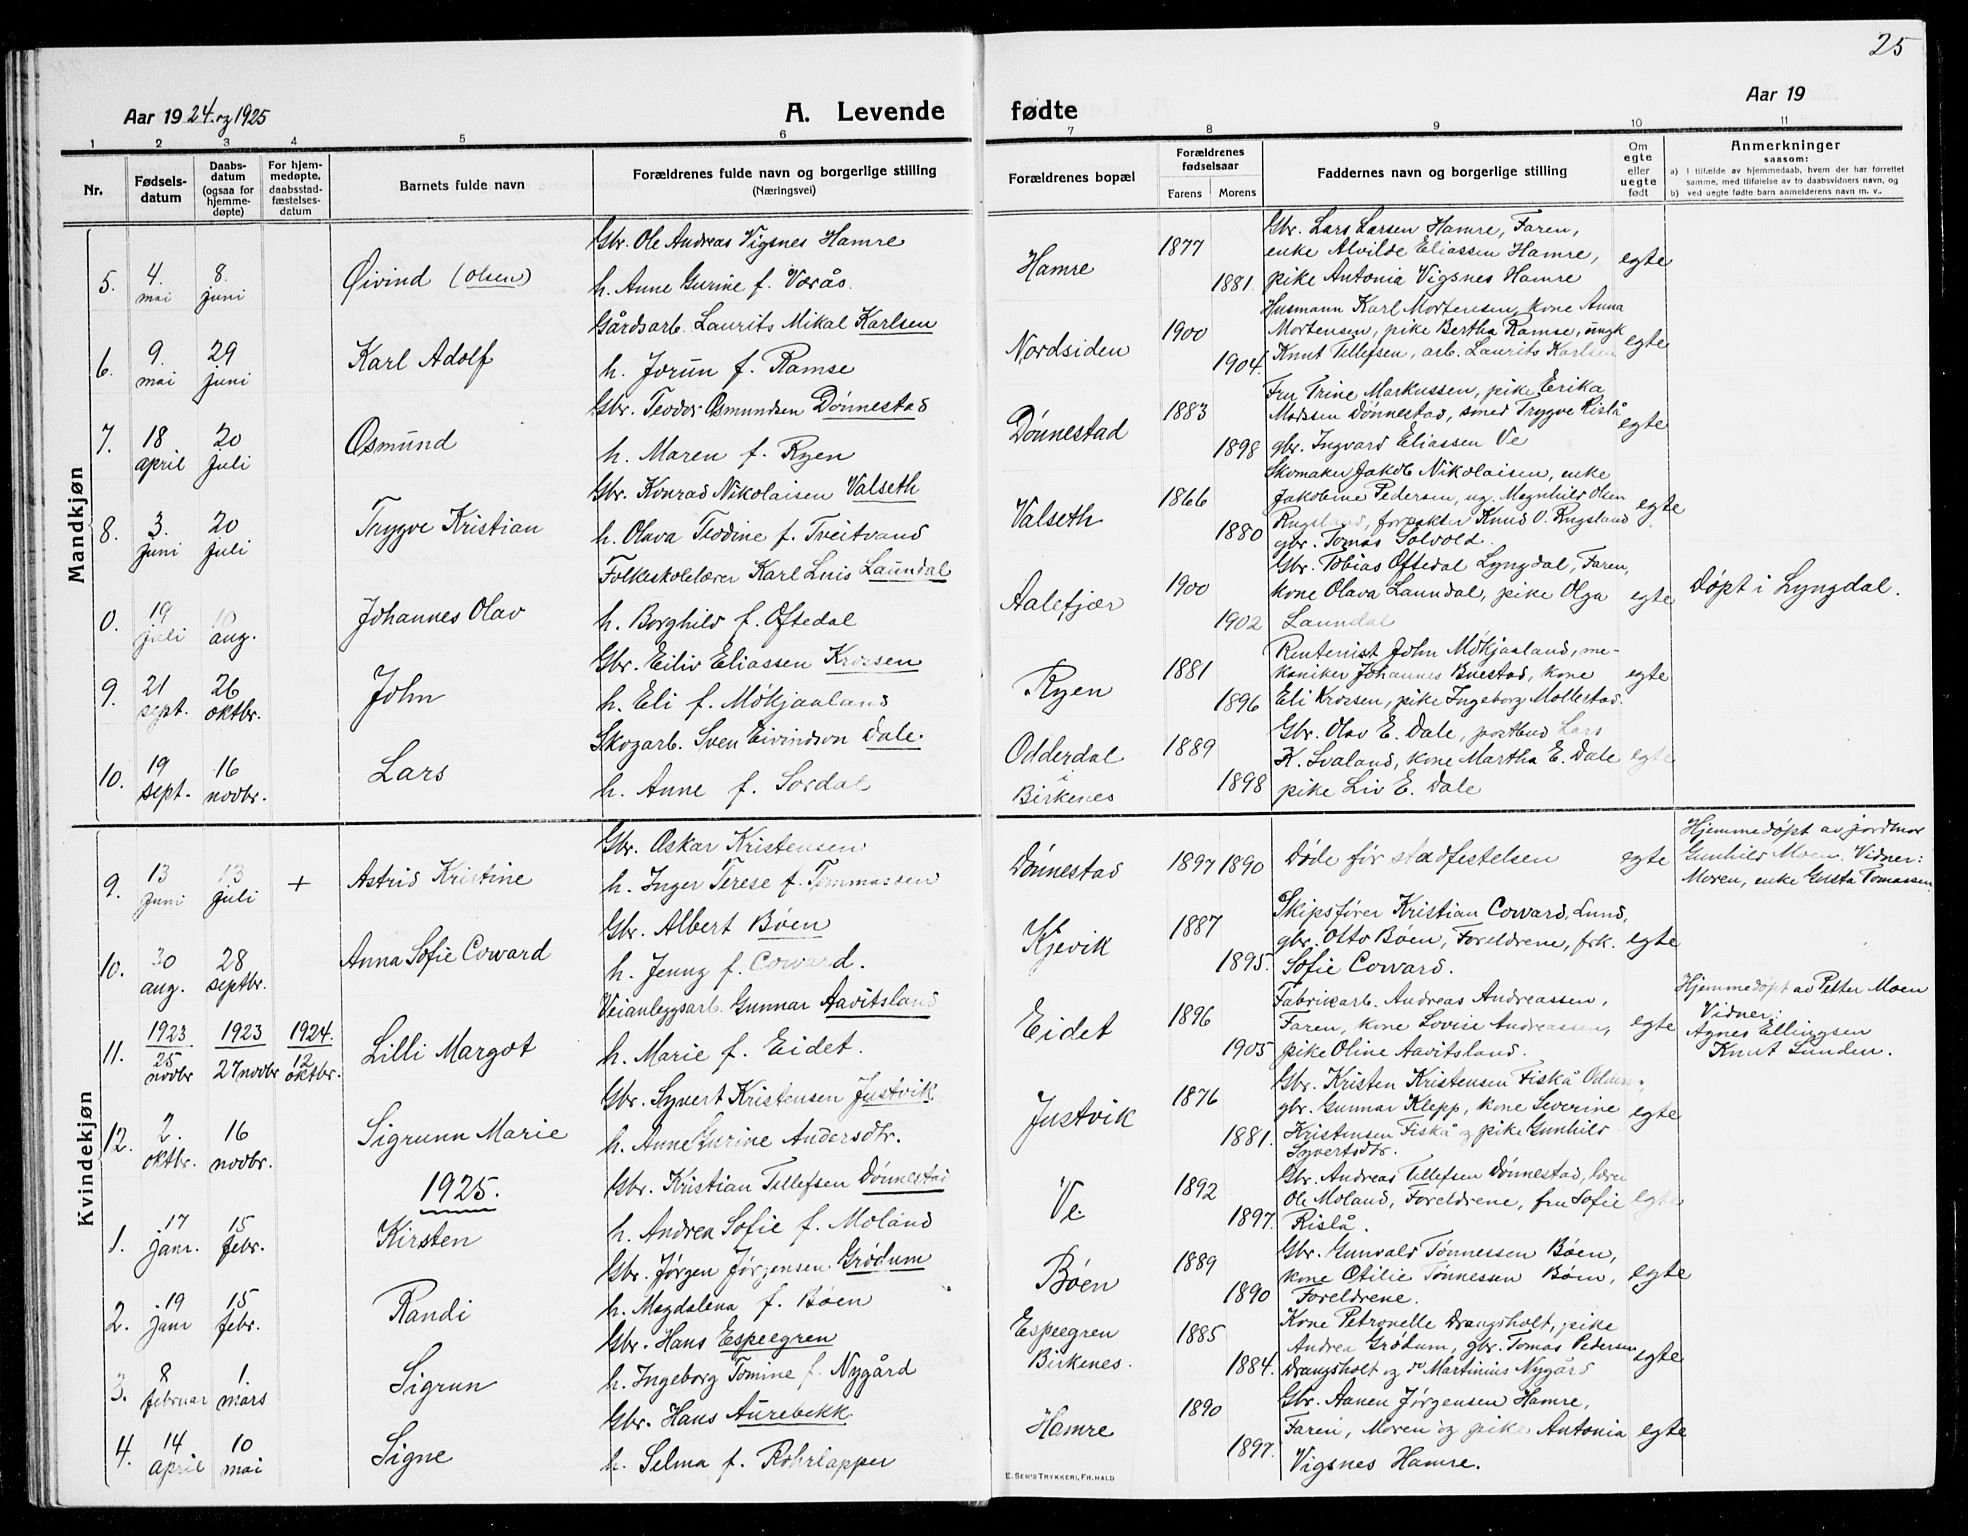 25
Aar 1924 og 1925
A. Levende fødte
Aar 19
1 2 3 4 5 6 7 8 9 10 11
Nr.
Fødsels-
datum
Daabs-
datum
(ogsaa for
hjemme-
døpte)
For hjem-
medøpte,
daabsstad-
fæstelses-
datum
Barnets fulde navn
Forældrenes fulde navn og borgerlige stilling
(Næringsvei)
Forældrenes bopæl
Forældrenes
fødselsaar
Farens Morens
Faddernes navn og borgerlige stilling
Om
egte
eller
uegte
født
Anmerkninger
saasom:
a) I tilfælde av hjemmedaab, hvem der har forrettet
samme, med tilføielse av to daabsvidners navn, og
b) ved uegte fødte barn anmelderens navn m. v..
Mandkjøn
5. 4. mai 8. juni Øivind (Olsen)
Gbr. Ole Andreas Vigsnes Hamre
h. Anne Gurine f. Værås.
Hamre 1877 1881.
Gbr. Lars Larsen Hamre, Faren,
enke Alvilde Eliassen Hamre,
pike Antonia Vigsnes Hamre
egte
6. 9. mai 29 juni Karl Adolf
Gårdsarb. Laurits Mikal Karlsen
h. Jorun f. Ramse
Nordsiden 1900 1904.
Husmann Karl Mortensen, kone Anna
Mortensen, pike Bertha Ramse, ungk
Knut Tellefsen, arb. Laurits Karlsen
egte
7. 18 april 20 juli Osmund
Gbr. Teodor Osmundsen Dønnestad
h. Maren f. Ryen
Dønnestad 1883 1898
Fru Trine Markussen, pike Erika
Madsen Dønnestad, smed Trygve Rislå
gbr. Ingvard Eliassen Ve
egte
8. 3. juni 20 juli Trygve Kristian
Gbr. Konrad Nikolaisen Valseth
h. Olava Teodine f. Treitvand
Valseth 1866 1880
Skomaker Jakob Nikolaisen, enke
Jakobine Pedersen, ug. Magnhild Olsen
Rugsland, forpakter Knud O. Rugsland
gbr. Tomas Solvold.
egte
0. 19 juli 10 aug. Johannes Olav
Folkeskolelærer Karl Luis Laundal
h. Borghild f. Oftedal
Aalefjær 1900 1902
Gbr. Tobias Oftedal Lyngdal, Faren,
kone Olava Laundal, pike Olga
Laundal
egte
Døpt i Lyngdal.
9. 21 sept. 26 oktbr. John
Gbr. Eiliv Eliassen Krossen
h. Eli f. Møhjaaland
Ryen 1881 1896
Rentenist John Møhjaaland, me-
kaniker Johannes Buestad, kone
Eli Krossen, pike Ingeborg Mollestad.
egte
10. 19 sept. 16 novbr. Lars
Skogarb. Sven Eivindson Dale.
h. Anne f. Sordal
Odderdal
i
Birkenes
1889 1898
Gbr. Olav E. Dale, postbud Lars
K. Svaland, kone Martha E. Dale
pike Liv E. Dale
egte
Kvindekjøn
9. 13 juni 13 juli + Astrid Kristine
Gbr. Oskar Kristensen
h. Inger Terese f. Tommassen
Dønnestad 1897 1890
Døde før stadfestelsen
egte
Hjemmedøpt av jordmor
Gunhild Moen. Vidner:
Moren, enke Gusta Tomassen
10. 30 aug. 28 septbr. Anna Sofie Coward
Gbr. Albert Bøen
h. Jenny f. Coward.
Kjevik 1887 1895.
Skipsfører Kristian Coward, Lund,
gbr. Otto Bøen, Foreldrene, frk.
Sofie Coward.
egte
11. 1923 25 novbr 1923 27 novbr 1924. 12 oktbr. Lilli Margot
Veianleggsarb. Gunnar Aavitsland
h. Marie f. Eidet.
Eidet 1896 1905
Fabrikarb. Andreas Andreassen,
Faren, kone Lovise Andreassen,
pike Oline Aavitsland.
egte
Hjemmedøpt av Petter Moen
Vidner:
Agnes Ellingsen
Knut Lunden.
12. 2. oktbr. 16 novbr. Sigrunn Marie
Gbr. Syvert Kristensen Justvik
h. Anne Gurine Andersdtr.
Justvik 1876 1881.
Gbr. Kristen Kristensen Fiskå Oddernes,
gbr. Gunnar Klepp, kone Severine
Kristensen Fiskå og pike Gunhild
Syvertsdtr.
egte
1925.
1. 17 janr. 15 febr. Kirsten
Gbr. Kristian Tellefsen Dønnestad
h. Andrea Sofie f. Moland
Ve 1892 1897.
Gbr. Andreas Tellefsen Dønnestad, lærer
Ole Moland, Foreldrene, fru Sofie
Rislå.
egte
2. 19 janr 15 febr. Randi
Gbr. Jørgen Jørgensen Grødum
h. Magdalena f. Bøen
Bøen 1889 1890
Gbr. Gunvald Tønnessen Bøen,
kone Otilie Tønnessen Bøen,
Foreldrene.
egte
3. 8 februar 1. mars Sigrun
Gbr. Hans Espeegren
h. Ingeborg Tomine f. Nygård
Espeegren
Birkenes.
1885 1884.
Kone Petronelle Drangsholt, pike
Andrea Grødum, gbr. Tomas Pedersen
Drangsholt og do Martinius Nygård
egte
4. 14 april 10 mai Signe
Gbr. Hans Aurebekk
h. Selma f. Rohrlapper
Hamre 1890 1897.
Gbr. Aanen Jørgensen Hamre,
Faren, Moren og pike Antonia
Vigsnes Hamre.
egte
E. SEM'S TRYKKERI, FR. HALD